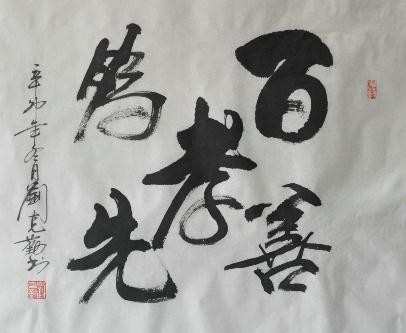 百善
孝
為先
辛卯年冬月